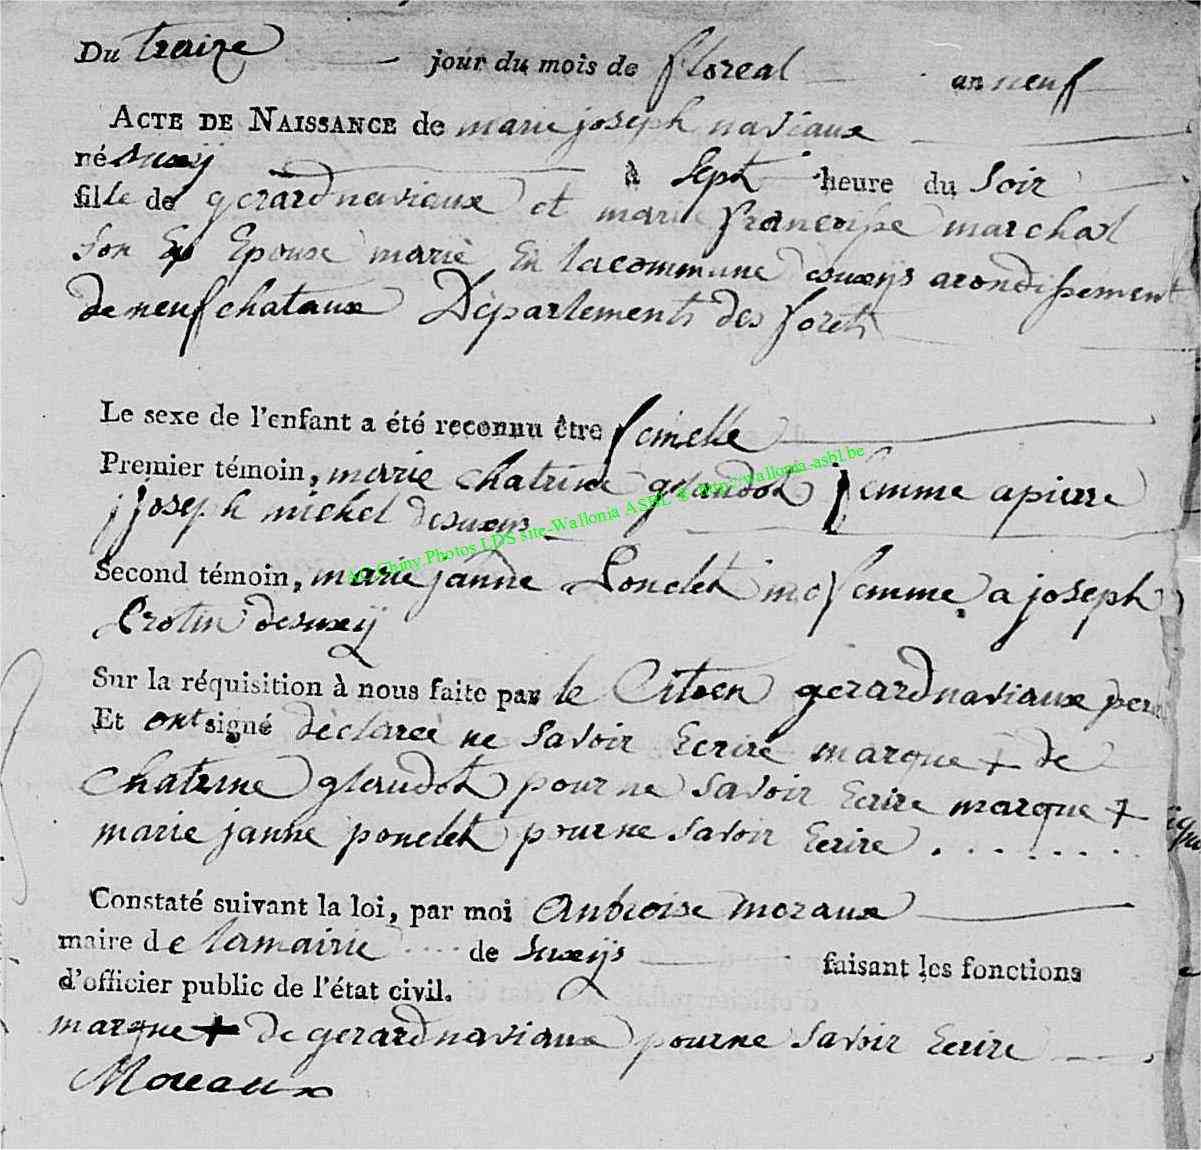 Du traize jour du mois de floreal an neuf
ACTE DE NAISSANCE de marie joseph naviaux
né suxÿ à Sept heure du Soir
fille de gerard naviaux et marie francoise marchal
Son Epouse marié En lacommune desuxÿs arondissement
de neufchataux Départements des forets
Le sexe de l'enfant a été reconnu être femelle
Premier témoin, marie Chatrine glaudot femme apierre
joseph michel desuxÿs
Arc Chiny Photos LDS site-Wallonia ASBL © http://wallonia-asbl.be
Second témoin, marie janne Ponclet femme a joseph
Crotin desuxÿ
Sur la réquisition à nous faite par le Citoen gerard naviaux pere
Et ont signé déclaréé ne Savoir Ecrire marque + de
Chatrine glaudot pour ne Savoir Ecrire marque +
marie janne ponclet pour ne Savoir Ecrire . . . . . . . .
Constaté suivant la loi, par moi Anbroise moraux
maire de lamairie de Suxÿs faisant les fonctions
d'officier public de l'état civil.
marque + de gerard naviaux pour ne Savoir Ecrire
Moreaux